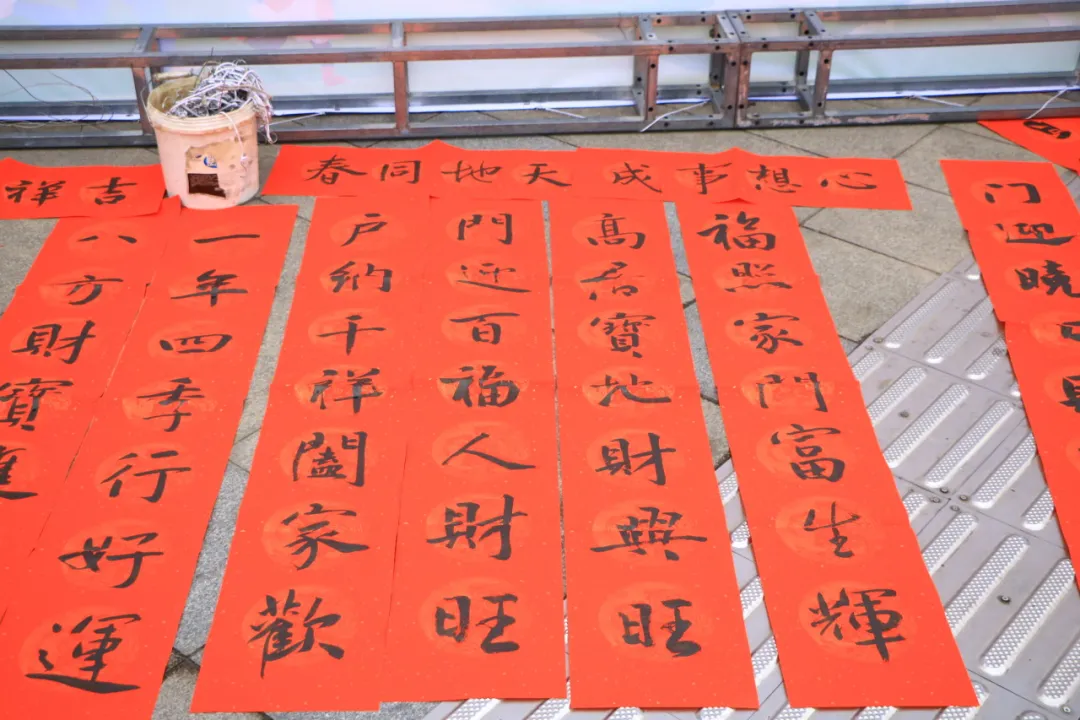 心想事成
天地同春
吉祥
门迎曉
福照家门富生輝
高居寶地財興旺
門迎百福人財旺
戶納千祥闔家歡
一年四季行好運
八方財寶